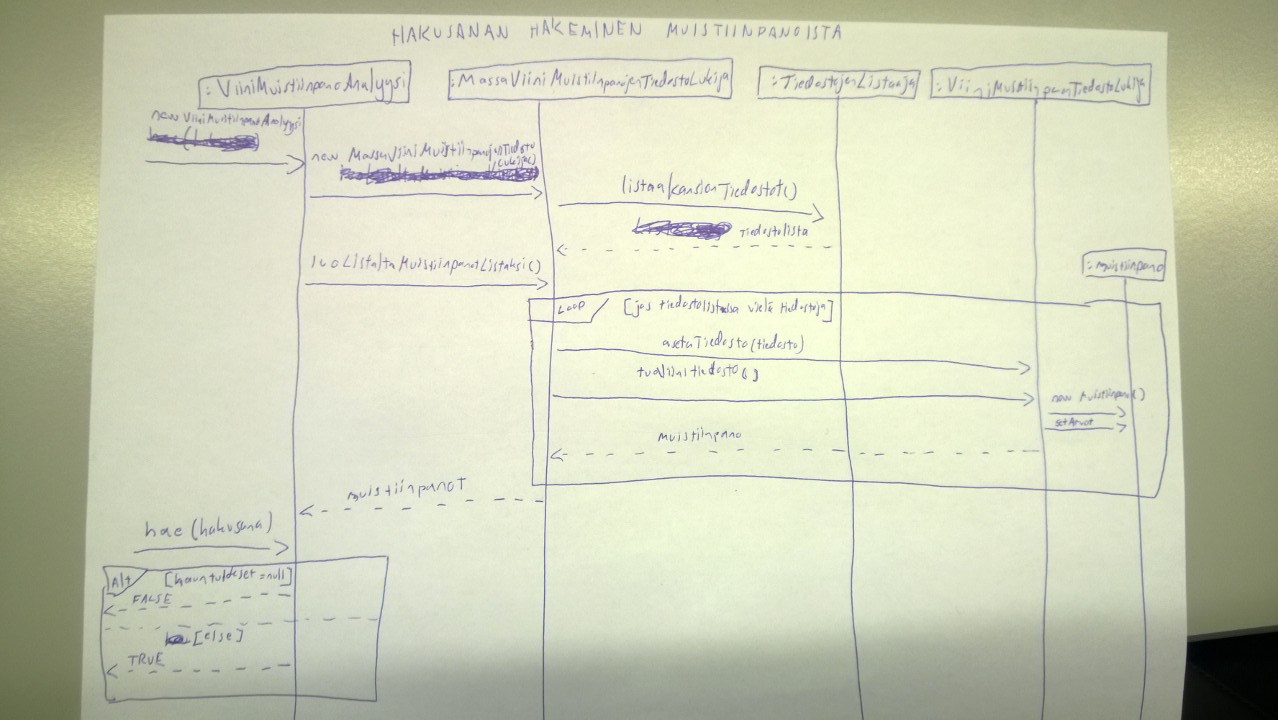 HAKUSANAN HAKEMINEN MUISTIINPANOISTA
:ViiniMuistiinpanoAnalyysi
:MassaViiniMuistiinpanojenTiedostoLukija
:TiedostojenListaaja
:ViiniMuistiinpanonTiedostoLukija
new ViiniMuistiinpanoAnalyysi
new MassaViiniMuistiinpanojenTiedosto
Lukija()
listaaKansionTiedostot()
Tiedostolista
luoListaltaMuistiinpanotListaksi()
:muistiinpano
LOOP
[jos tiedostolistassa vielä tiedostoja]
asetaTiedosto(tiedosto)
new Muistiinpano()
setArvot
muistiinpano
muistiinpanot
hae(hakusana)
Alt
[hauntulokset=null]
FALSE
[else]
TRUE